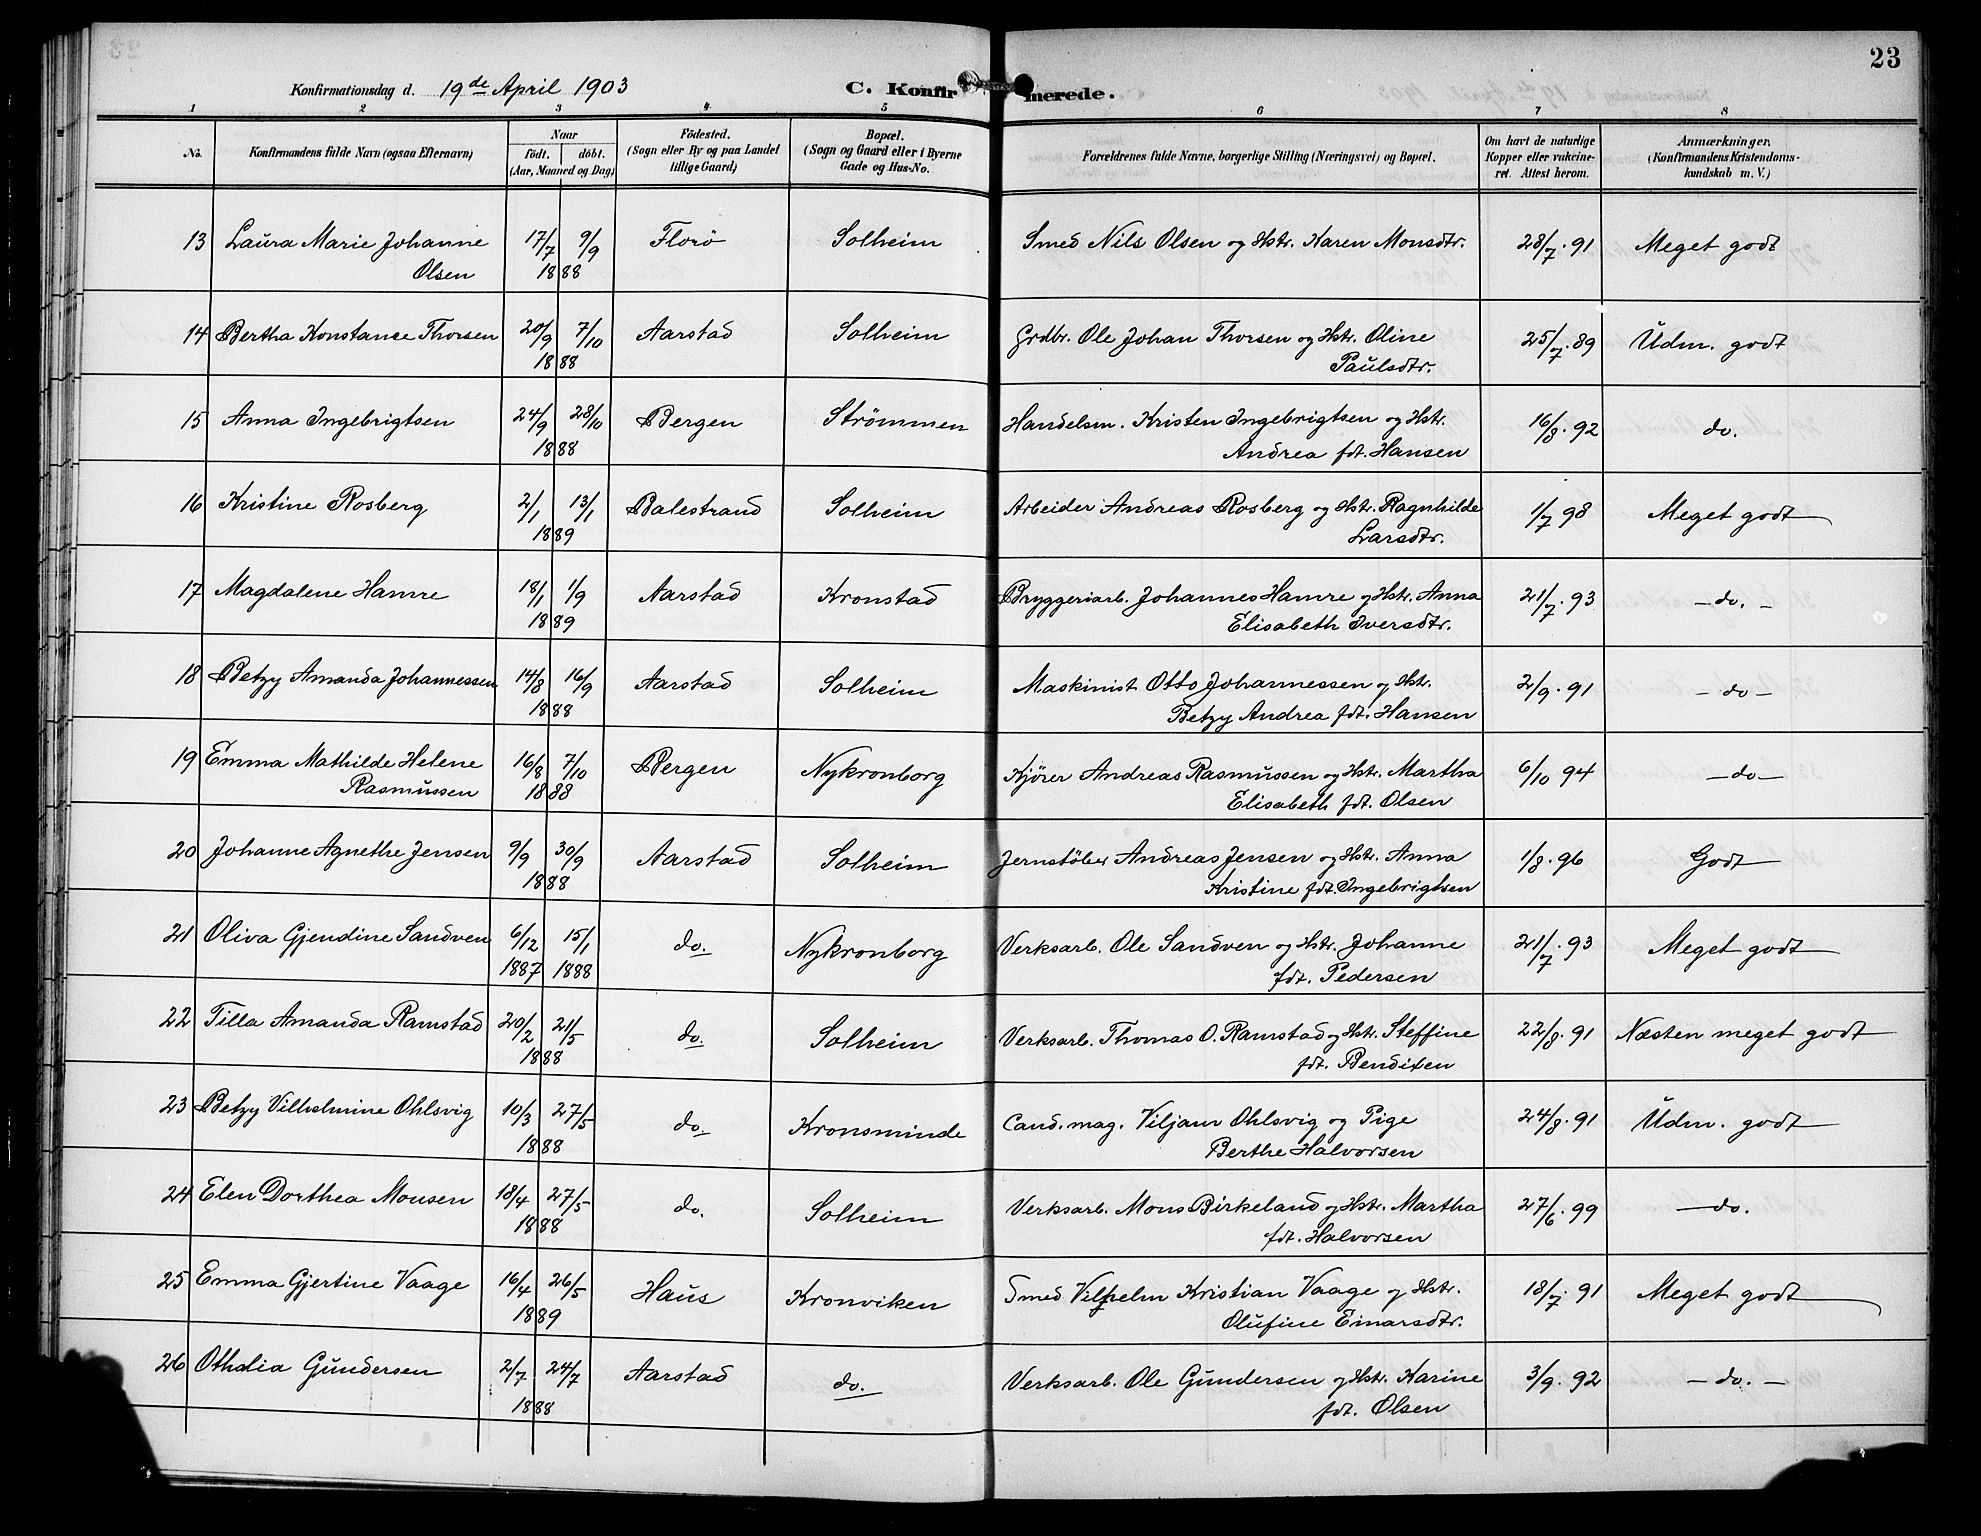 23
Konfirmationsdag d. 19de April 1903 C. Konfirmerede.
1 2 3 4 5 6 7 8
No. Konfirmandens fulde Navn (ogsaa Efternavn) Naar födt. döbt. (Aar, Maaned og Dag) Födested. (Sogn eller By og paa Landet tillige Gaard) Bopæl. (Sogn og Gaard eller i Byerne Gade og Hus-No. Forældrenes fulde Navne, borgerlige Stilling (Næringsvei) og Bopæl. Om havt de naturlige Kopper eller vakcineret. Attest herom. Anmærkninger. (Konfirmandens Kristendomskundskab m. V.)
13 Laura Marie Johanne 17/7 9/9 Florö Solheim Smed Nils Olsen og Hstr. Karen Monsdtr. 28/7. 91 Meget godt
Olsen 1888
14 Bertha Konstanse Thorsen 20/9 7/10 Aarstad Solheim Grdbr. Ole Johan Thorsen og Hstr. Oline 25/7. 89 Udm. godt
1888 Paulsdtr.
15 Anna Ingebrigtsen 24/9 28/10 Bergen Strömmen Handelsm. Kristen Ingebrigtsen og Hstr. 16/8. 92 do.
1888 Andrea fdt. Hansen
16 Kristine Rosberg 2/1 13/1 Balestrand Solheim Arbeider Andreas Rosberg og Hstr. Ragnhilde 1/7 98 Meget godt
1889 Larsdtr.
17 Magdalene Hamre 18/1 1/9 Aarstad Kronstad Bryggeriarb. Johannes Hamre og Hstr. Anna 21/7. 93 - do. -
1889 Elisabeth Iversdtr.
18 Betzy Amanda Johannessen 14/8 16/9 Aarstad Solheim Maskinist Otto Johannessen og Hstr. 2/9. 91 - do -
1888 Betzy Andrea fdt. Hansen
19 Emma Mathilde Helene 16/8 7/10 Bergen Nykronborg Kjörer Andreas Rasmussen og Hstr. Martha 6/10 94 - do -
Rasmussen 1888 Elisabeth fdt. Olsen
20 Johanne Agnethe Jensen 9/9 30/9 Aarstad Solheim Jernstöber Andreas Jensen og Hstr. Anna 1/8. 96 Godt
1888 Kristine fdt. Ingebrigtsen
21 Oliva Gjendine Sandven 6/12 15/1 do. Nykronborg Verksarb. Ole Sandven og Hstr. Johanne 21/7. 93 Meget godt
1887 1888 fdt. Pedersen
22 Tilla Amanda Ramstad 20/2 21/5 do. Solheim Verksarb. Thomas O. Ramstad og Hstr. Steffine 22/8. 91 Næsten meget godt
1888 fdt. Bendixen
23 Betzy Vilhelmine Ohlsvig 10/3 27/5 do. Kronsminde Cand. mag. Viljam Ohlsvig og Pige 24/8. 91 Udm. godt
1888 Berthe Halvorsen
24 Elen Dorthea Monsen 18/4 27/5 do. Solheim Verksarb. Mons Birkeland og Hstr. Martha 27/6. 99 - do.
1888 fdt. Halvorsen
25 Emma Gjertine Vaage 16/4 26/5 Haus Kronviken Smed Vilhelm Kristian Vaage og Hstr. 18/7. 91 Meget godt
1889 Olufine Einarsdtr.
26 Othalia Gundersen 2/7 24/7 Aarstad do. Verksarb. Ole Gundersen og Hstr. Karine 3/9. 92 - do. -
1888 fdt. Olsen